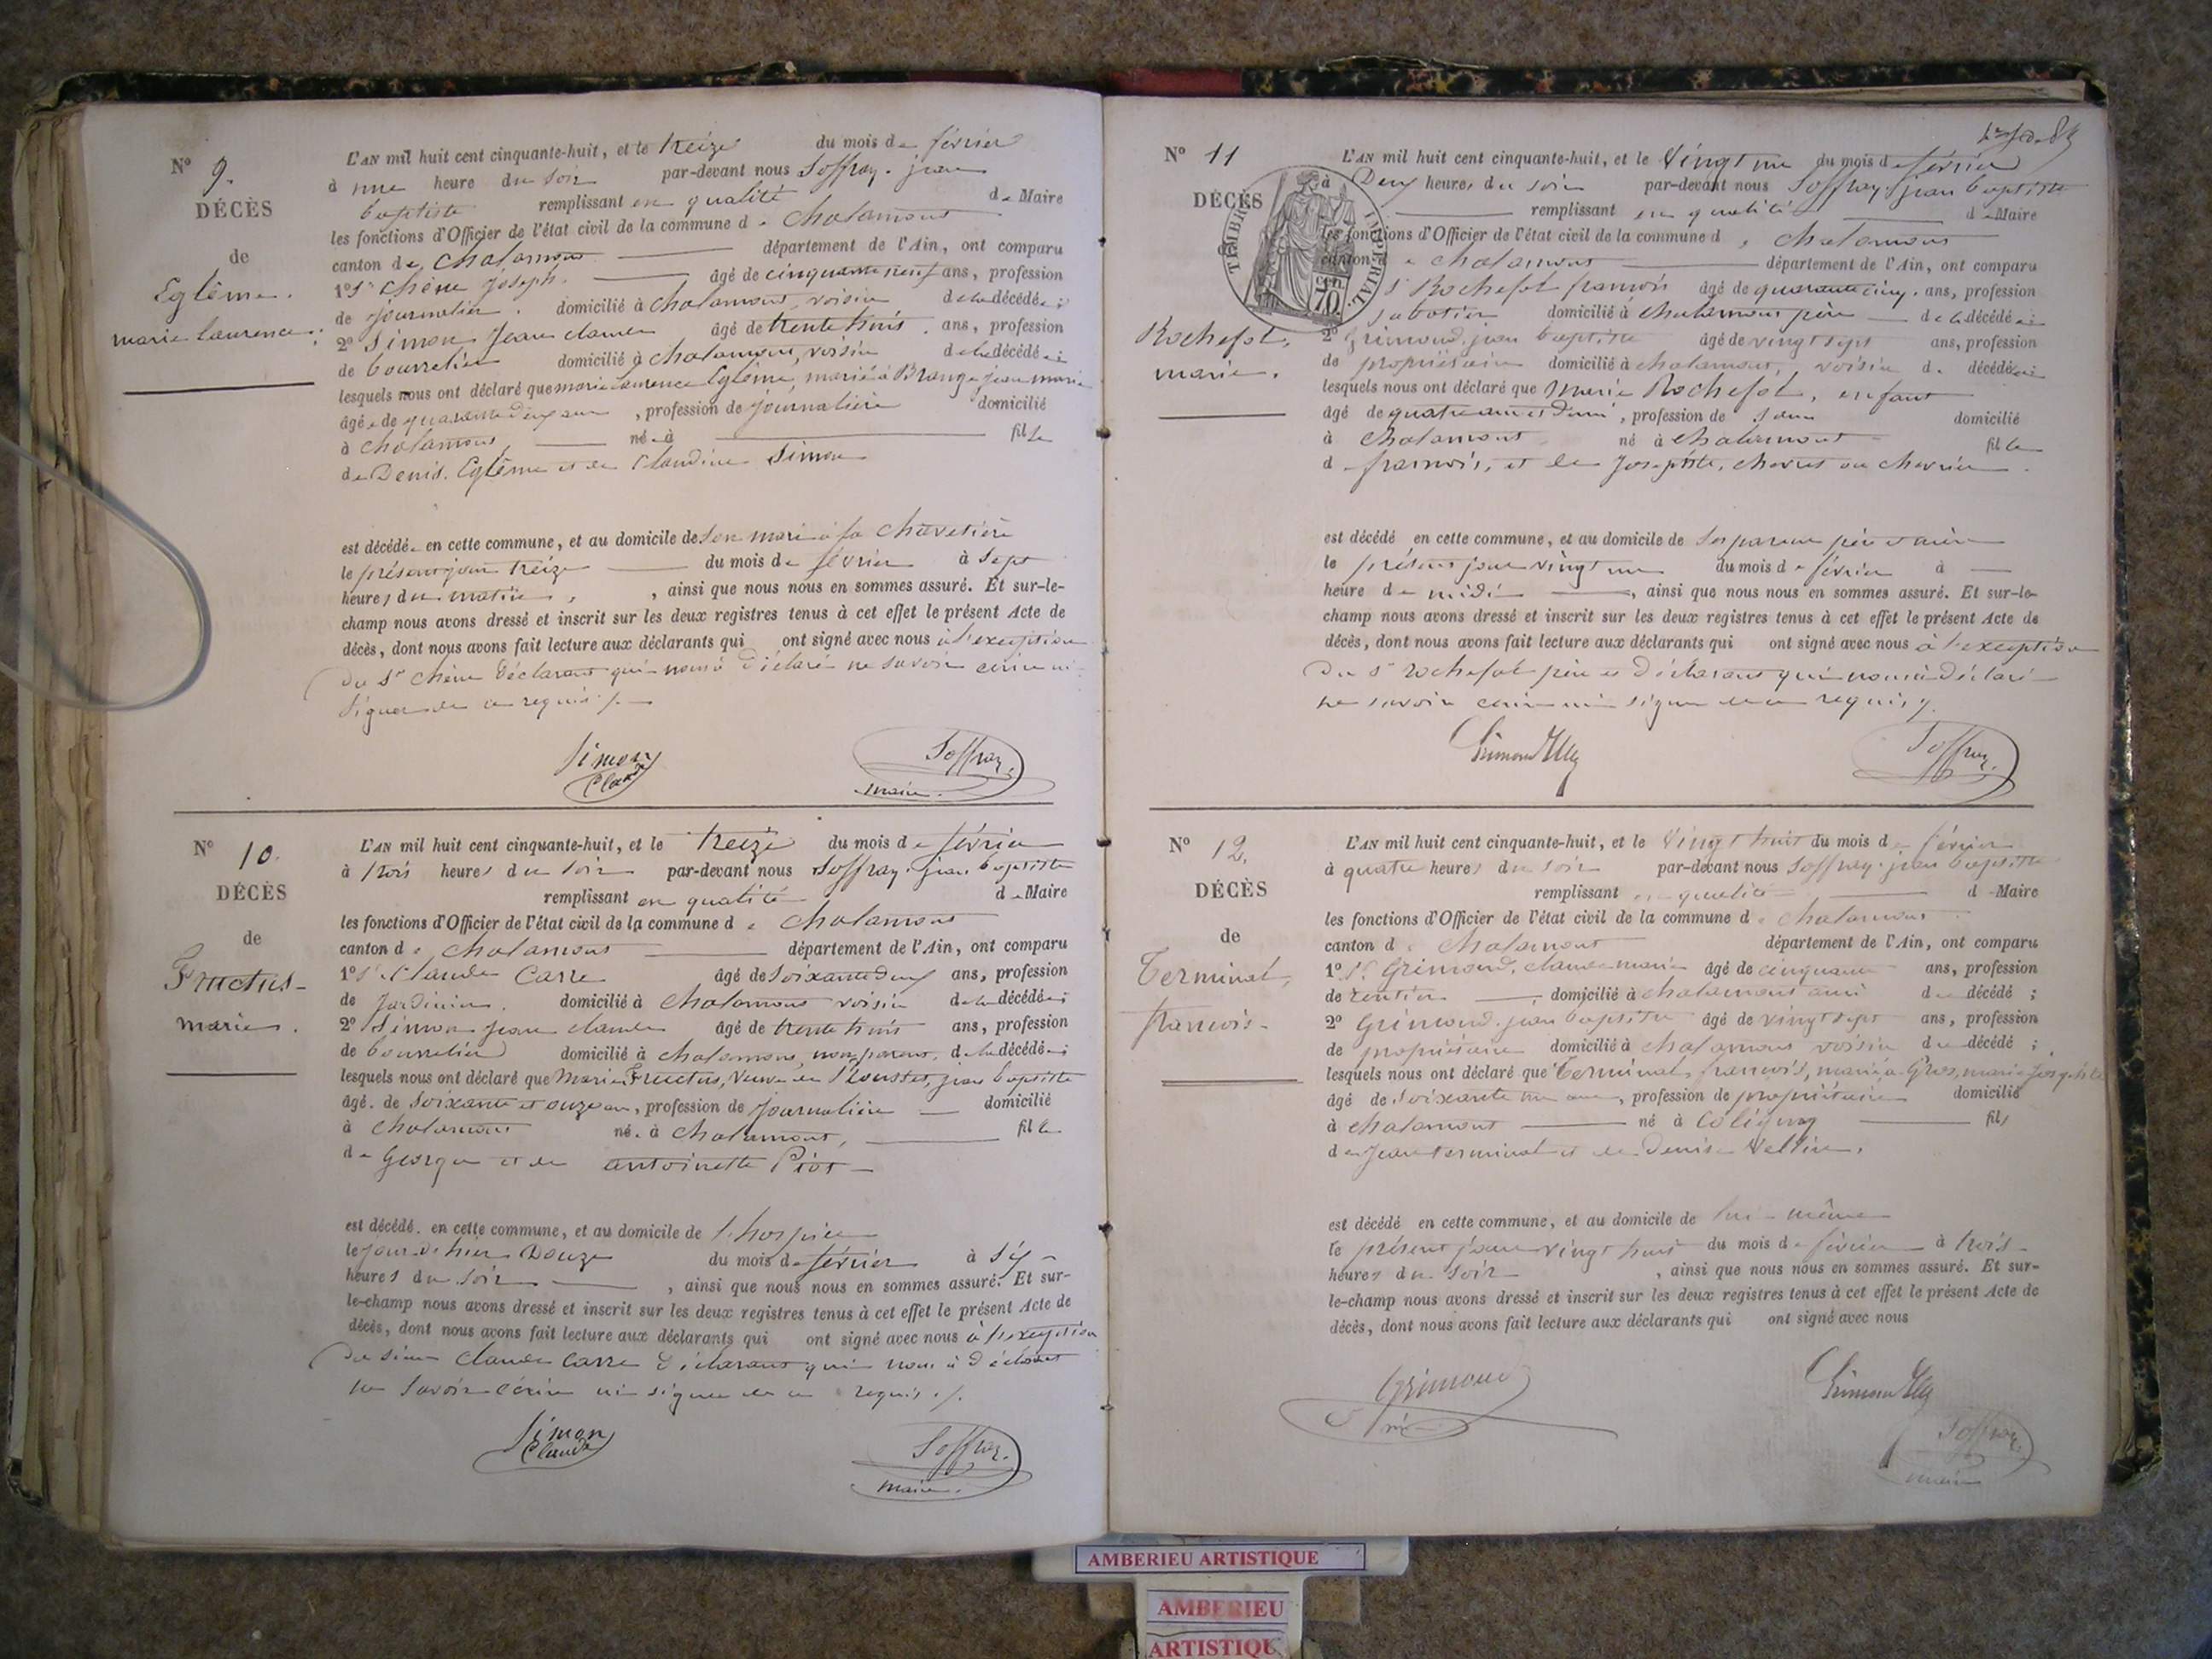 N° 9.
DÉCÈS
de
Eglême.
marie laurence.
L'AN mil huit cent cinquante-huit, et le treize du mois de février
à une heure du soir par-devant nous Soffray. jean
baptiste remplissant en qualité de Maire
les fonctions d'Officier de l'état civil de la commune de Chalamont
canton de Chalamont département de l'Ain, ont comparu
1° Sr Chêne Joseph. âgé de cinquante neuf ans, profession
de journalier. domicilié à Chalamont, voisin de la décédée;
2° Simon Jean claude âgé de trente trois. ans, profession
de bourrelier domicilié à Chalamont, voisin de la décédée;
lesquels nous ont déclaré que marie laurence Eglême, mariée à Brange jean marie
âgée de quarante deux ans, profession de journalière domicilié
à Chalamont, née à fille
de Denis. Eglême et de Claudine Simon
est décédée en cette commune, et au domicile de son mari à la Chavetière
le présent jour treize du mois de février à sept
heures du matin, ainsi que nous nous en sommes assuré. Et sur-le-
champ nous avons dressé et inscrit sur les deux registres tenus à cet effet le présent Acte de
décès, dont nous avons fait lecture aux déclarants qui ont signé avec nous à l'exception
du Sr Chêne déclarant qui nous à déclaré ne savoir écrire ni
signer de ce requis ./.
Simon
Claude
Soffray.
maire.
N° 10.
DÉCÈS
de
Fructus
marie.
L'AN mil huit cent cinquante-huit, et le treize du mois de février
à trois heures du soir par-devant nous Soffray. jean baptiste
remplissant en qualité de Maire
les fonctions d'Officier de l'état civil de la commune de Chalamont
canton de Chalamont département de l'Ain, ont comparu
1° Sr Claude Carre âgé de soixante deux ans, profession
de Jardinier. domicilié à Chalamont voisin de la décédée;
2° Simon jean claude âgé de trente trois ans, profession
de bourrelier domicilié à Chalamont, non parent, de la décédée;
lesquels nous ont déclaré que Marie Fructus, Veuve de jean baptiste
âgé. de soixante et onze ans, profession de journalière domicilié
à Chalamont né. à Chalamont, fille
de George et de antoinette Piot
est décédé. en cette commune, et au domicile de l'hospice
le jour d'hier Douze du mois de février à six
heures du soir, ainsi que nous nous en sommes assuré. Et sur-
le-champ nous avons dressé et inscrit sur les deux registres tenus à cet effet le présent Acte de
décès, dont nous avons fait lecture aux déclarants qui ont signé avec nous à l'exception
du sieur Claude Carre déclarant qui nous à déclaré
ne savoir écrire ni signer de ce requis ./.
Simon
Claude
Soffray.
maire.
N° 11
DÉCÈS
TIMBRE IMPERIAL.
70
Rochefol,
marie.
L'AN mil huit cent cinquante-huit, et le Vingt un du mois de février
à Deux heures du soir par-devant nous Soffray jean baptiste
remplissant en qualité de Maire
les fonctions d'Officier de l'état civil de la commune de Chalamont
canton de Chalamont département de l'Ain, ont comparu
Sr Rochefol francois âgé de quarante cinq. ans, profession
sabotier domicilié à Chalamont père de la décédée
2° Grimond. jean baptiste âgé de vingt sept ans, profession
de propriétaire domicilié à Chalamont, voisin d. décédée
lesquels nous ont déclaré que Marie Rochefol, enfant
âgé de quatre ans et demi, profession de sans domicilié
à Chalamont né à Chalamont fille
de francois, et de Josephte, chevres ou chevrier
est décédé en cette commune, et au domicile de ses parens père et mère
le présent jour vingt un du mois de février à
heure de midi, ainsi que nous nous en sommes assuré. Et sur-le-
champ nous avons dressé et inscrit sur les deux registres tenus à cet effet le présent Acte de
décès, dont nous avons fait lecture aux déclarants qui ont signé avec nous à l'exception
du Sr rochefol père et déclarant qui nous à déclaré
ne savoir écrire ni signer de ce requis ./.
Soffray.
N° 12.
DÉCÈS
de
Terminal,
francois
L'AN mil huit cent cinquante-huit, et le Vingt huit du mois de février
à quatre heures du soir par-devant nous Soffray. jean baptiste
remplissant en qualité de Maire
les fonctions d'Officier de l'état civil de la commune de Chalamont
canton de Chalamont département de l'Ain, ont comparu
1° Sr Grimond, claude marie âgé de cinquante ans, profession
de rentier, domicilié à Chalamont ami du décédé;
2° Grimond. jean baptiste âgé de vingt sept ans, profession
de propriétaire domicilié à Chalamont voisin du décédé;
lesquels nous ont déclaré que Terminal, francois, marié à Gros, marie Josephte
âgé de soixante un ans, profession de propriétaire domicilié
à Chalamont né à Coligny fils
de Jean terminal et de Denise Vellin.
est décédé en cette commune, et au domicile de lui-même
le présent jour vingt huit du mois de février à trois
heures du soir, ainsi que nous nous en sommes assuré. Et sur-
le-champ nous avons dressé et inscrit sur les deux registres tenus à cet effet le présent Acte de
décès, dont nous avons fait lecture aux déclarants qui ont signé avec nous
Grimond
Soffray.
maire
AMBERIEU ARTISTIQUE
AMBERIEU
ARTISTIQUE